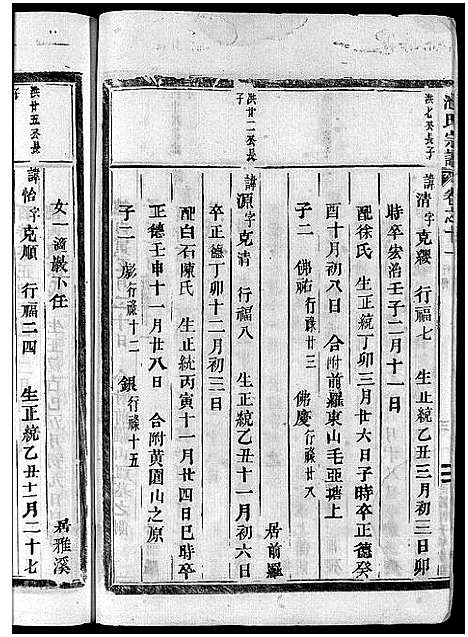 氏宗譜 卷之十一
洪七公長子
諱清字克纓 行福七 生正統乙丑三月初三日卯
時卒宏治壬子二月十一日
配徐氏 生正統丁卯三月廿六日子時卒正德癸
酉十月初八日 合附前羅東山毛亞塘上
子二 佛祐行祿廿三 佛慶行祿廿八
居前羅
洪廿二公長子
諱源字克清 行福八 生正統乙丑十一月初六日
卒正德丁卯十二月初三日
配白石陳氏 生正統丙寅十一月廿四日巳時卒
正德壬申十一月廿八日 合附黃園山之原
子二 彪行祿十二 銀行祿十五
女一適巖下任
居雅溪
洪廿五公長子
諱怡字克順 行福二四 生正統乙丑十一月二十七